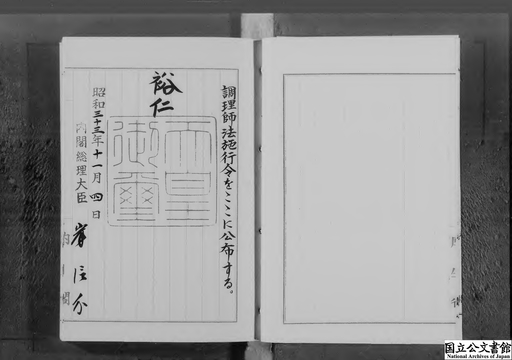 調理師法施行令をここに公布する。
裕仁
天皇
御璽
昭和三十三年十一月四日
内閣総理大臣 岸信介
内閣
国立公文書館
National Archives of Japan